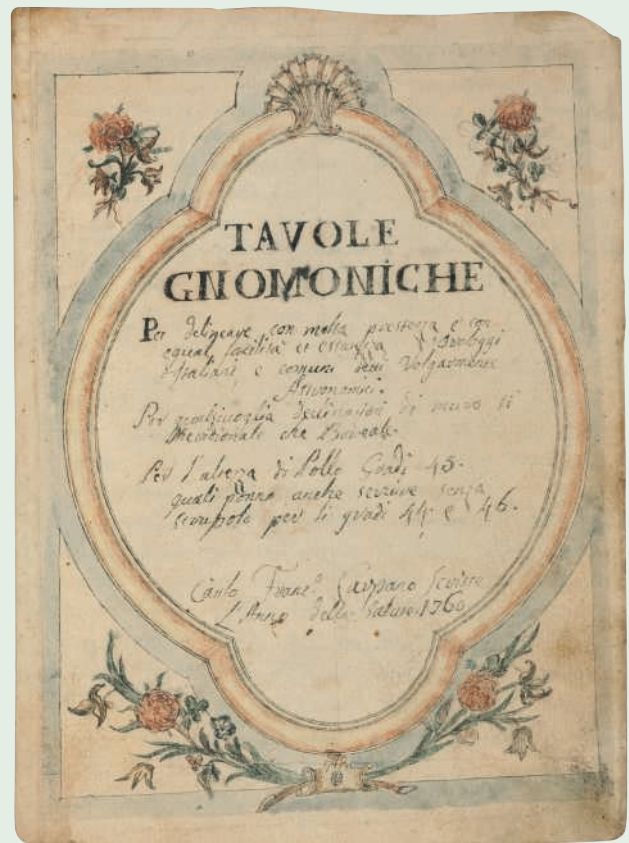 TAVOLE
GNOMONICHE
Per delineare con molta prestezza e con
equal facilità et esattezza Orologgi
Italiani e comuni detti Volgarmente
Astronomici.
Per qualsivoglia declinazioni di muro si
Meridionale che Boreale.
Per l'altezza di Pollo Gradi 45.
quali ponno anche servire senza
scrupolo per li gradi 44 e 46.
Carlo Franc.º scrisse
L'Anno della Salute 1760